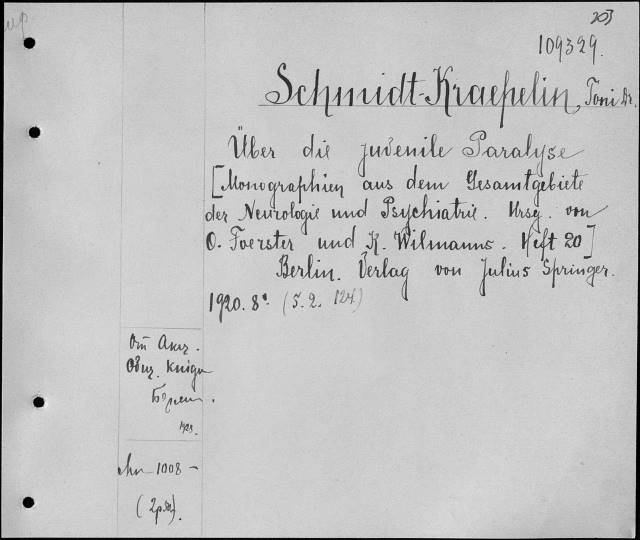 203
109329.
Schmidt-Kraepelin, Toni Dr.
Über die juvenile Paralyse
[Monographien aus dem Gesamtgebiete
der Neurologie und Psychiatrie. Hrsg. von
O. Foerster und K. Wilmanns. Heft 20]
Berlin. Verlag von Julius Springer.
1920. 8°. (5. 2. 124)
От Акц.
Общ. Книга
192
1008 –
(2